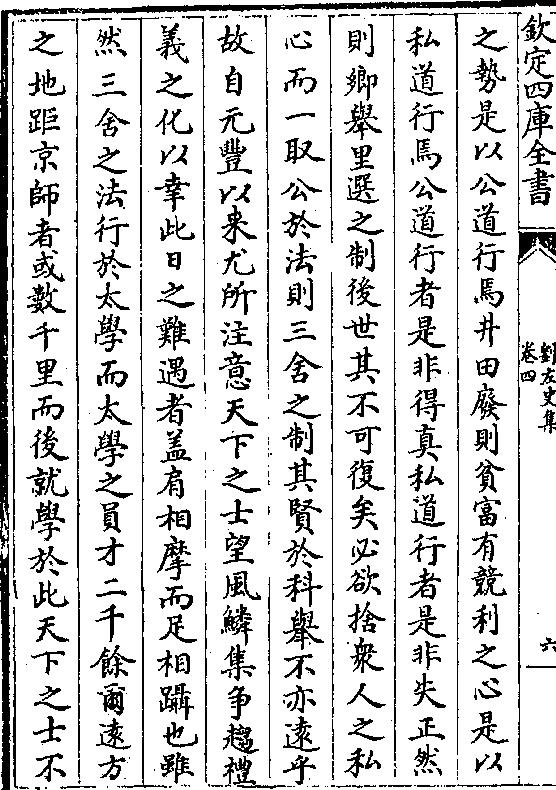 欽定四庫全書
劉左史集
卷四
六
之勢是以公道行焉井田廢則貧富有競利之心是以
私道行焉公道行者是非得真私道行者是非失正然
則鄉舉里選之制後世其不可復矣必欲捨衆人之私
心而一取公於法則三舍之制其賢於科舉不亦遠乎
故自元豐以来尤所注意天下之士望風鱗集争趨禮
義之化以幸此日之難遇者盖肩相摩而足相躡也雖
然三舍之法行於太學而太學之員才二千餘爾逺方
之地距京師者或數千里而後就學於此天下之士不